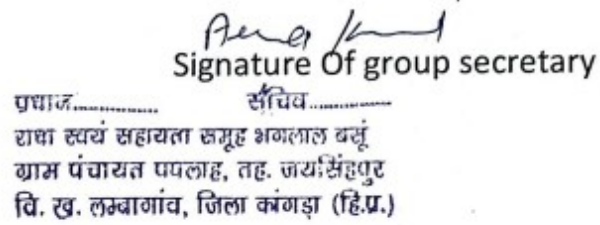 Signature Of group secretary
प्रधान................ सचिव................
राधा स्वयं सहायता समूह भगलाल बसूं
ग्राम पंचायत पपलाह, तह. जयसिंहपुर
वि. ख. लम्बागांव, जिला कांगड़ा (हि.प्र.)